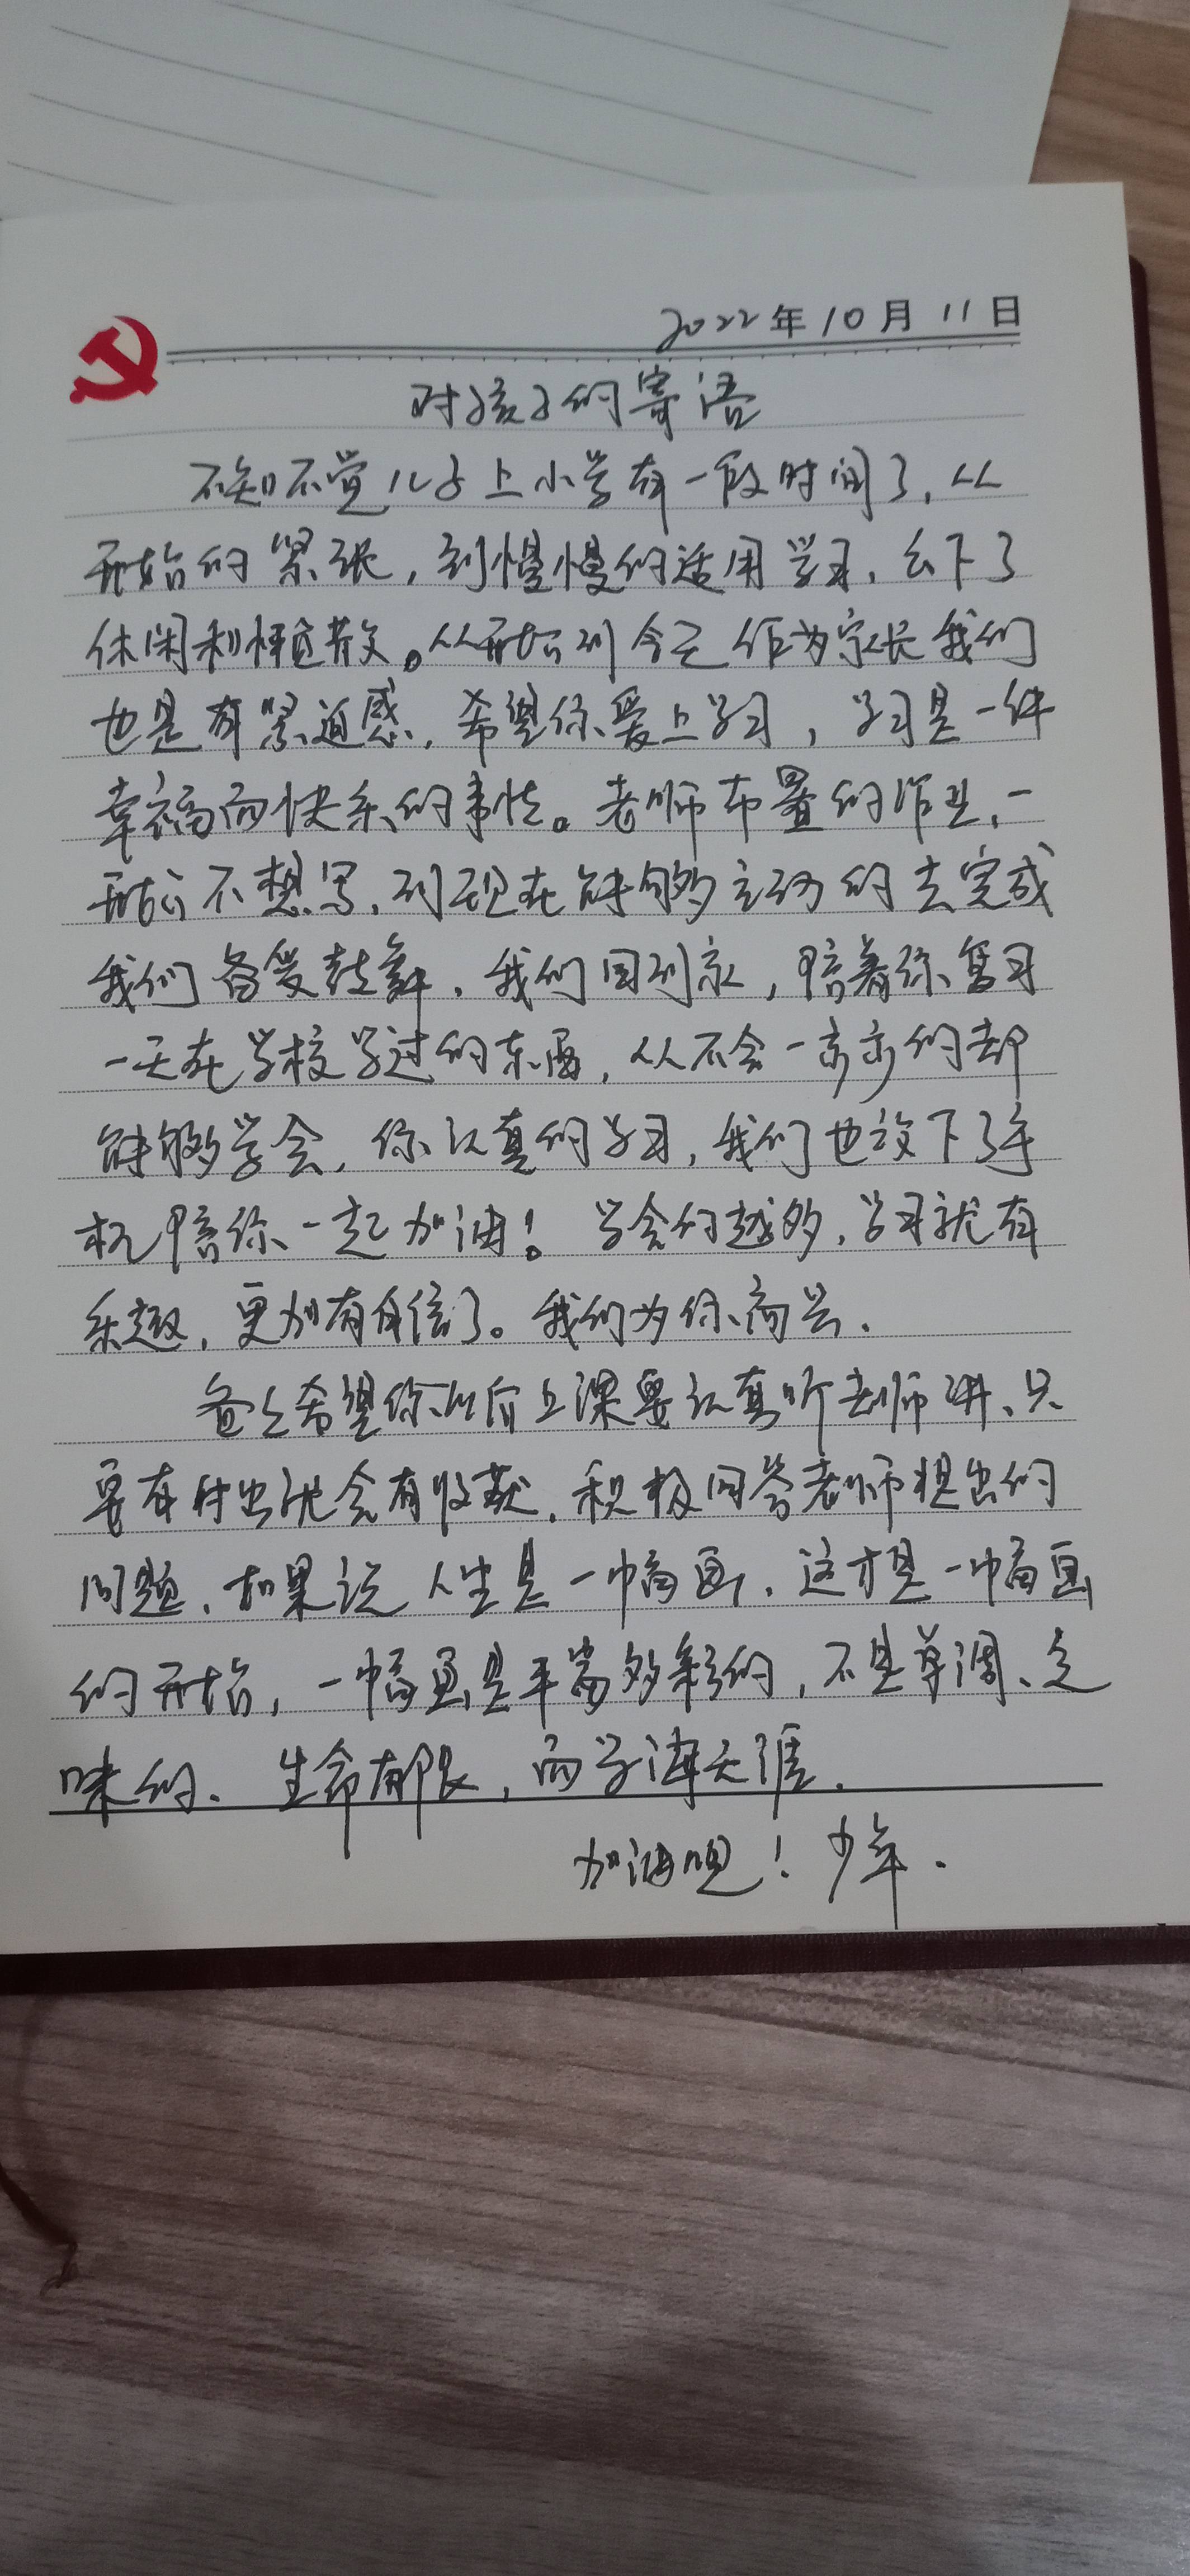 2022年10月11日
对孩子的寄语
不知不觉儿子上小学有一段时间了,从
开始的紧张,到慢慢的适用学习,去下了
休闲和懒散。从开始到今天作为家长我们
也是有紧迫感,希望你爱上学习,学习是一件
幸福而快乐的事情。老师布置的作业,一
开始不想写,到现在能够主动的去完成
我们备受鼓舞,我们回到家,陪着你复习
一天在学校学过的东西,从不会一步步的却
能够学会,你认真的学习,我们也放下了手
机陪你一起加油!学会的越多,学习就有
乐趣,更加有自信了。我们为你高兴.
爸爸希望你以后上课要认真听老师讲、只
要有付出就会有收获,积极回答老师提出的
问题、如果说人生是一幅画,这才是一幅画
的开始,一幅画是丰富多彩的,不是单调、乏
味的.生命有限,而学海无涯.
加油吧!少年.